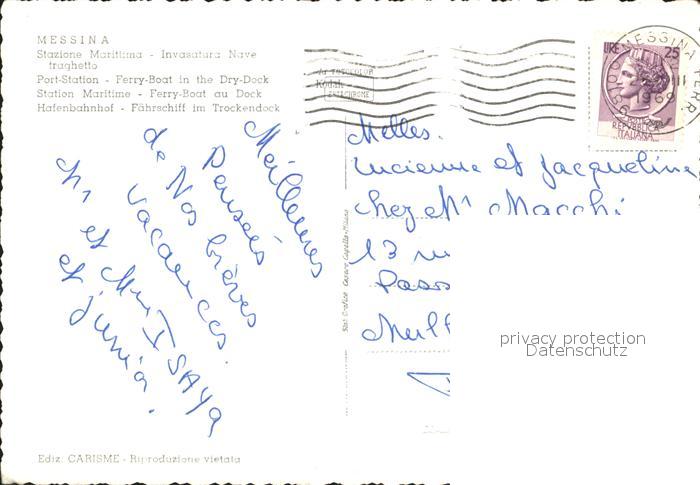 MESSINA
Stazione Marittima - Invasatura Nave
traghetto
Port-Station - Ferry-Boat in the Dry-Dock
Station Maritime - Ferry-Boat au Dock
Hafenbahnhof - Fährschiff im Trockendock
Kodak
EKTACHROME
MESSINA FERR.
LIRE 25
REPVBBLICA
ITALIANA
Melles.
Lucienne et Jacqueline
chez Mr Macchi
13 ru
Pass
Mulh
Meilleures
Pensées
de Nos brèves
vacances.
Mr et Mme ISAYA
et junior.
privacy protection
Datenschutz
Ediz. CARISME - Riproduzione vietata